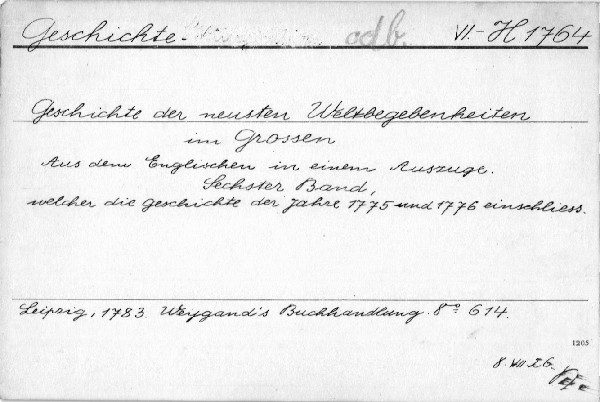 Geschichte. odb. VI.-H 1764
Geschichte der neusten Weltbegebenheiten
im Grossen
Aus dem Englischen in einem Auszuge.
Sechster Band,
welcher die Geschichte der Jahre 1775 und 1776 einschliess.
Leipzig, 1783. Weygand's Buchhandlung. 8° 614.
1205
8. VII. 26.